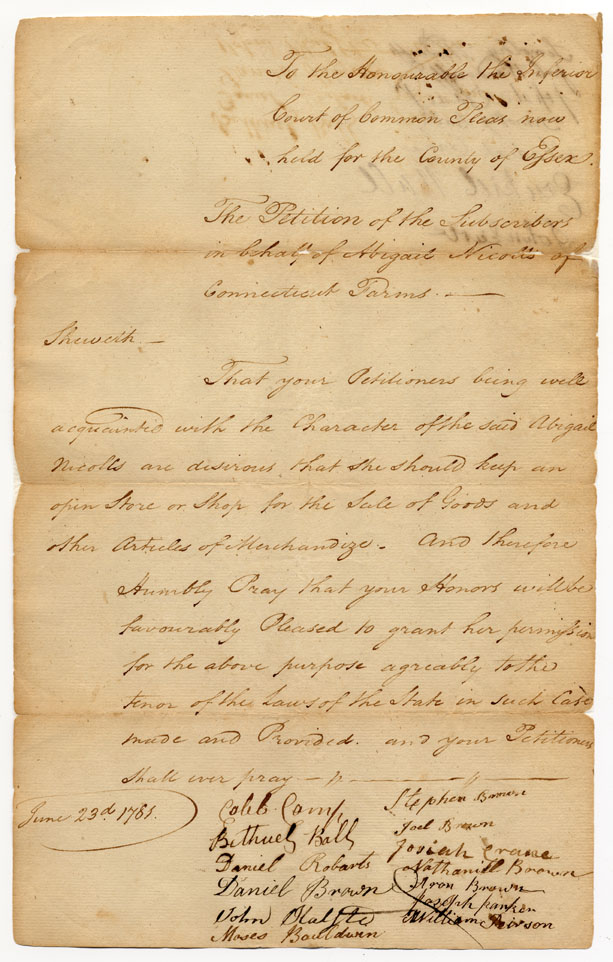 To the Honourable the Inferior
Court of Common Pleas now
held for the County of Essex.
The Petition of the Subscribers
in behalf of Abigail Nicolls of
Connecticut Farms. —
Sheweth —
That your Petitioners being well
acquainted with the Character of the said Abigail
Nicolls are desirous that she should keep an
open Store or Shop for the Sale of Goods and
other Articles of Merchandize. And therefore
Humbly Pray that your Honors will be
favourably Pleased to grant her permission
for the above purpose agreably to the
tenor of the Laws of the State in such Case
made and Provided. and your Petitioners
shall ever pray —
June 23d 1785.
Caleb Camp
Bethuel Ball
Daniel Robarts
Daniel Brown
John
Moses Bauldwin
Stephen Brown
Joel Brown
Josiah Crane
Nathaniell Brown
Aron Brown
Joseph
William Peirson